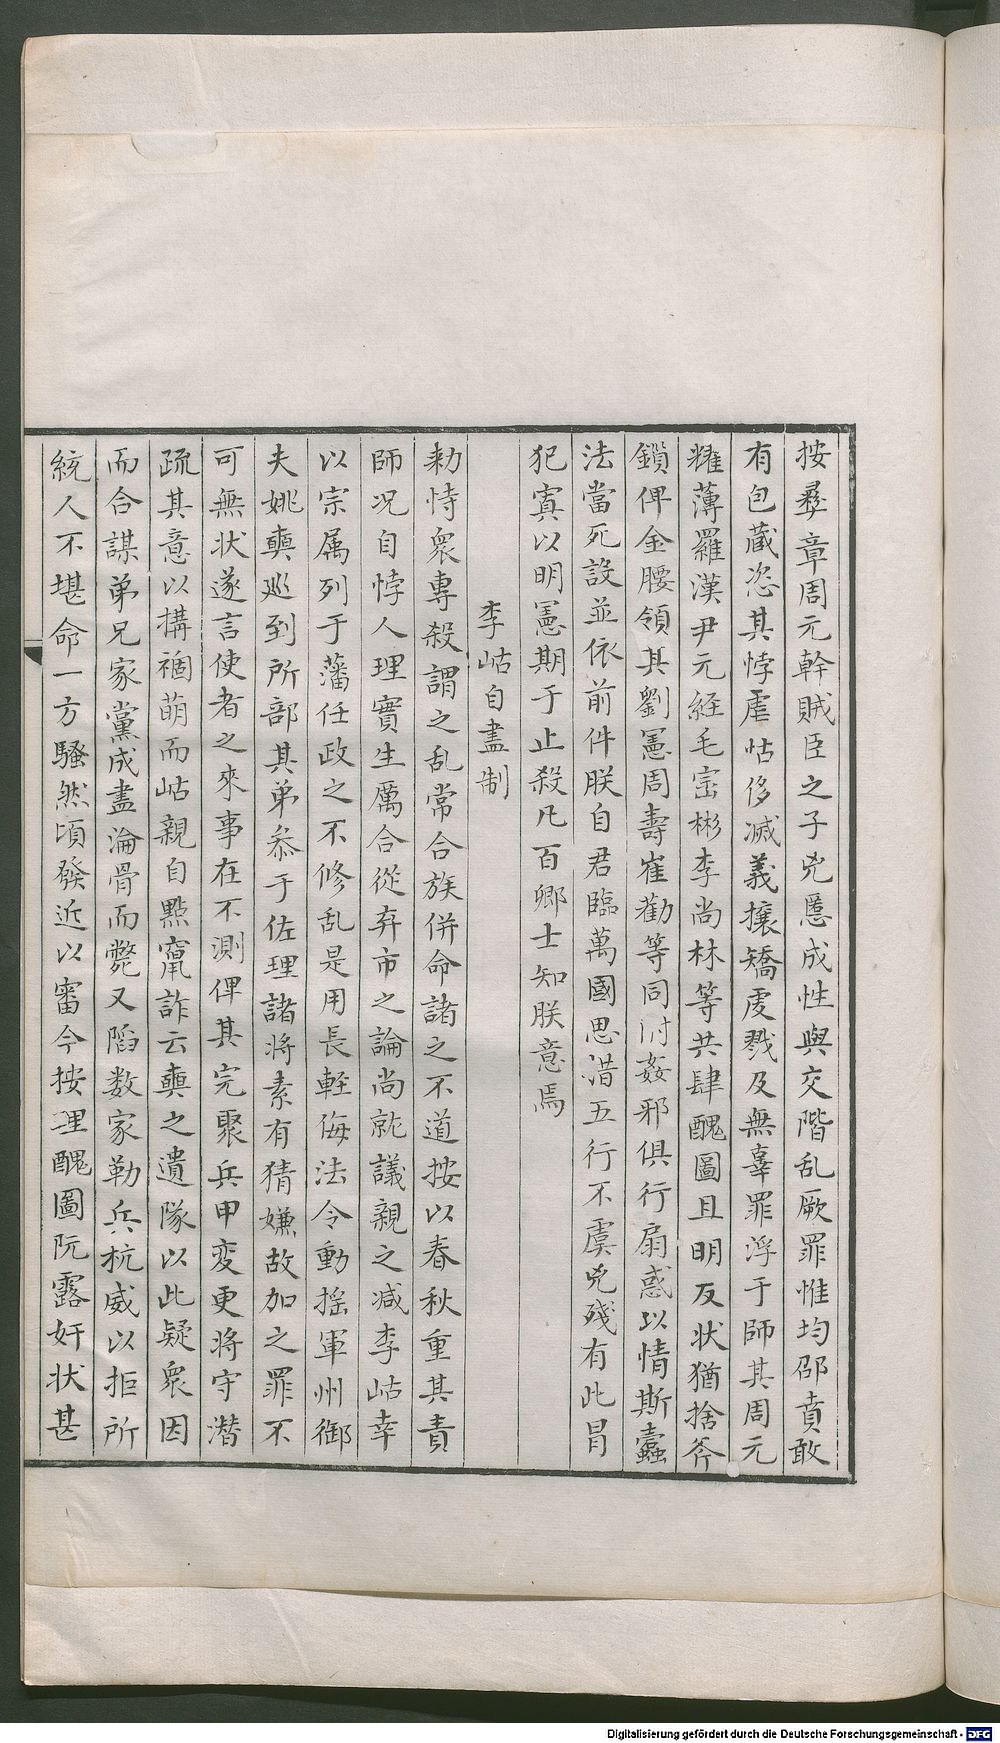 按彝章周元幹賊臣之子兇慝成性與交階乱厥罪惟均邵賁敢
有包藏恣其悖虐怙侈滅義攘矯虔戮及無辜罪浮于師其周元
耀薄羅漢尹元經毛崈彬李尚林等共肆醜圖且明反状猶捨斧
鎖俾金腰領其劉憲周壽崔勸等同附姦邪俱行扇惑以情斯蠹
法當死設並依前件朕自君臨萬國思措五行不虞兇殘有此冒
犯寘以明憲期于止殺凡百卿士知朕意焉
李岵自盡制
勅恃衆專殺謂之乱常合族併命諸之不道按以春秋重其責
師况自悖人理實生厲合從弃市之論尚就議親之减李岵幸
以宗属列于藩任政之不修乱是用長輕侮法令動揺軍州御
夫姚奭巡到所部其弟忝于佐理諸将素有猜嫌故加之罪不
可無状遂言使者之來事在不測俾其完聚兵甲变更将守潜
疏其意以搆禍萌而岵親自點竄詐云奭之遺隊以此疑衆因
而合謀弟兄家黨成盡淪骨而斃又䧟数家勒兵杭威以拒所
統人不堪命一方騷然頃發近以審今按理醜圖阮露奸状甚
Digitalisierung gefördert durch die Deutsche Forschungsgemeinschaft - DFG